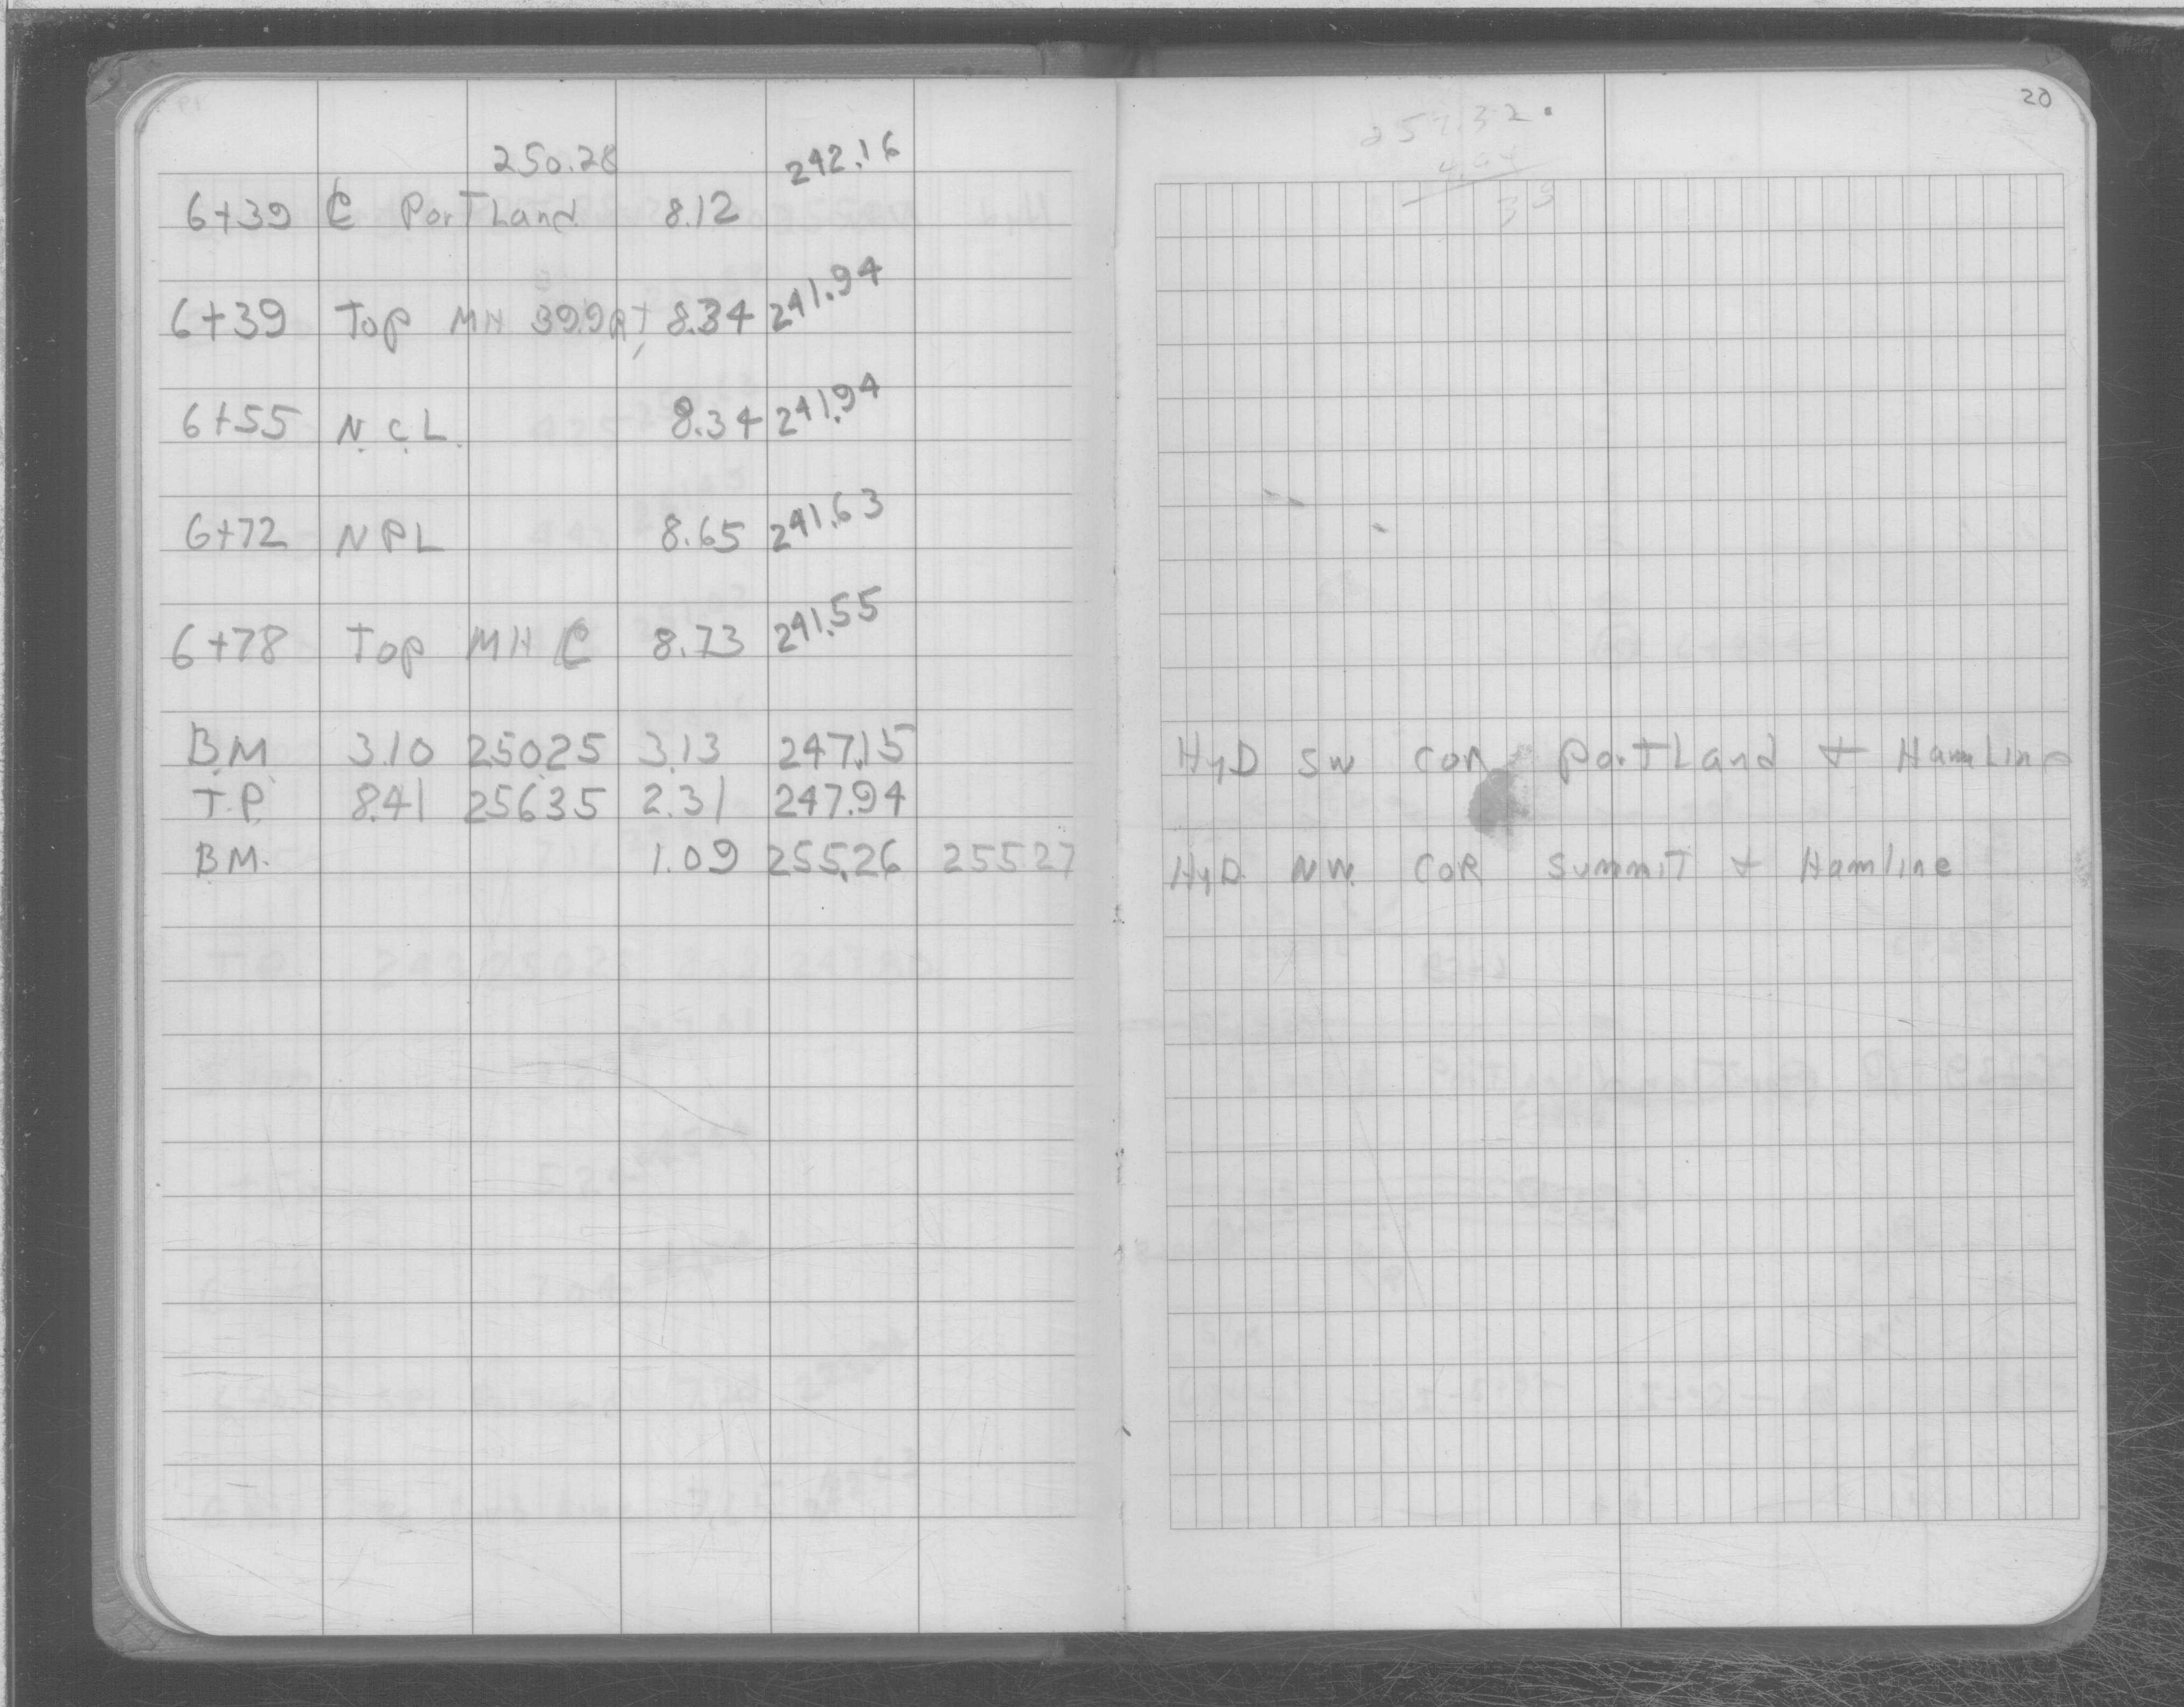 20
250.28 242.16
6+39 ℄ Portland 8.12
6+39 Top MH 39.9 RT, 8.34 241.94
6+55 N.C.L. 8.34 241.94
6+72 NPL 8.65 241.63
6+78 Top MH ℄ 8.73 241.55
B.M. 3.10 250.25 3.13 247.15 HyD SW COR Portland + Hamline
T.P. 8.41 256.35 2.31 247.94
B.M. 1.09 255.26 255 27 HyD. NW. COR Summit + Hamline